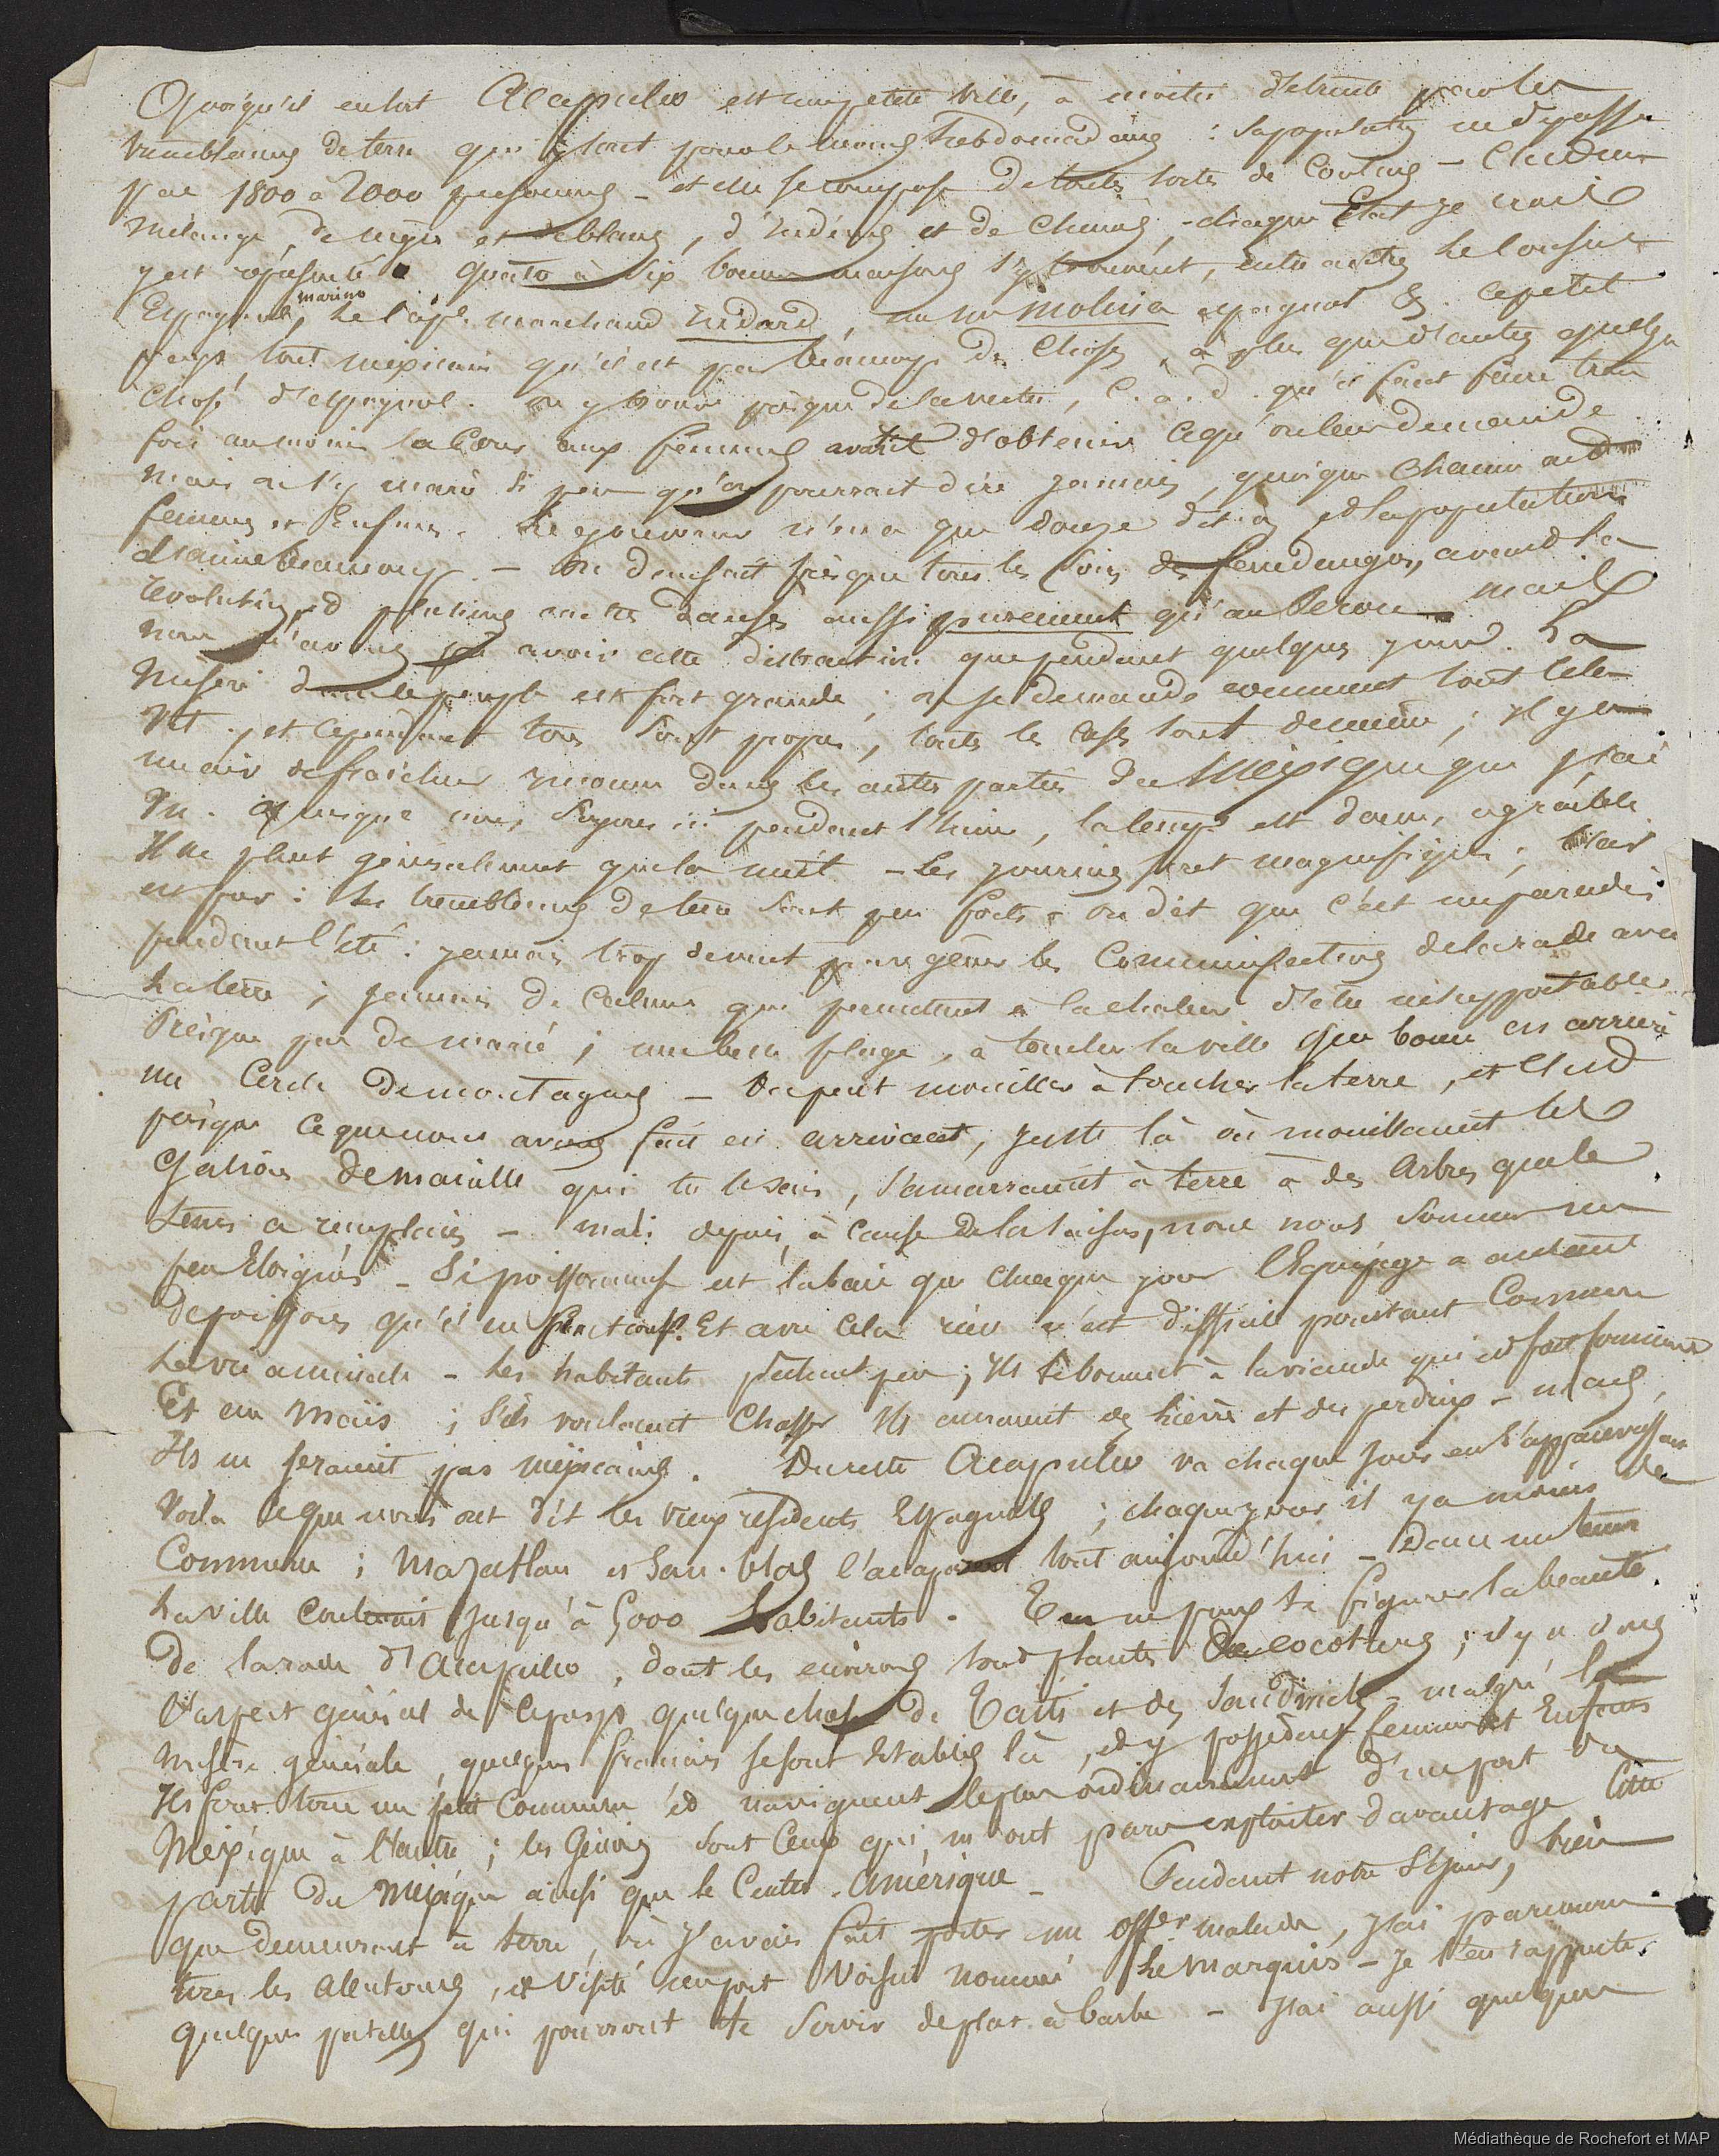 Quoiqu'il en soit Acapulco est une petite ville, à moitié détruite par les
tremblemens de terre qui y sont pour le moins hebdomadaires : sa population ne dépasse
pas 1800 à 2000 personnes - et elle se compose de toutes sortes de couleurs -
mélange, de nègres et de blancs, d'indiens et de chinois, - chaque Etat je crois
y est représenté. quatre à six bonnes maisons s'y trouvent, entre autres le consul
Espagnol, le cape. marino marchand , un mr molina espagnol &. ce petit
pays, tout mexicain qu'il est par beaucoup de choses, a plus que d'autres quelque
chose d'espagnol. on y trouve presque de la vertu, c.a.d. qu'il faut faire trois
fois au moins la cour aux femmes avant d'obtenir ce qu'on leur demande.
mais on s'y marie si peu qu'on pourrait dire jamais, quoique chacun ait
femmes et Enfans. Le gouverneur n'en a que douze dit-on, et la population
l'aime beaucoup. - On dansait presque tous les soirs des fandangos, avant la
révolution, et plusieurs autres danses aussi purement qu'au Perou - mais
nous n'avons pu avoir cette distraction que pendant quelques jours. La
misère dans le peuple est fort grande ; on se demande comment tout cela
vit, et cependant tous sont propres, toutes les cases sont de même ; il y a
un air de fraîcheur inconnu dans les autres parties du Mexique que j'ai
vu. quoique nous soyons ici pendant l'hiver, le temps est doux, agréable
Il ne pleut généralement que la nuit - les journées sont magnifiques ; l'air
est pur : les tremblemens de terre sont peu forts - on dit que c'est un paradis
pendant l'été : jamais trop de vent pour gêner les communications de la rade avec
la terre ; jamais de calmes qui permettent à la chaleur d'être insupportable.
Presque pas de marée ; une belle plage, à toucher la ville que borne en arrière
un cercle de montagnes - on peut mouiller à toucher la terre, et c'est
presque ce que nous avons fait en arrivant, juste là où mouillaient les
galions de manille qui tu le sais, s'amarraient à terre à des arbres que le
tems a remplacés - mais depuis, à cause de la saison, nous nous sommes un
peu Eloignés - Si poissonneuse est la baie que chaque jour l'Equipage a autant
de poissons qu'il en peut conso. Et avec cela rien n'est difficile pourtant comme
la vie animale - les habitants pêchent peu ; Ils se bornent à la viande qui est fort
Et au maïs ; s'ils voulaient chasser Ils auraient des lièvres et des perdrix - mais,
Ils ne seraient pas mexicains. Du reste Acapulco va chaque jour en s'appauvrissant
Voila ce que nous ont dit les vieux résidents Espagnols ; chaque jour il y a moins de
commerce ; Mazatlan et San-blas l'accaparent tout aujourd'hui - Dans un tems
la ville contenait jusqu'à 5000 habitants. Tu ne peux te figurer la beauté
de la rade d'Acapulco, dont les environs sont plantés de cocotiers ; il y a dans
l'aspect général de ce pays quelque chose de Taïti et des Sandwich - malgré la
misère générale, quelques français se sont Etablis là, et y possèdent femmes et Enfans
Ils font tous un petit commerce et naviguent le plus ordinairement d'un port du
Mexique à l'autre ; les Génois sont ceux qui m'ont paru exploiter davantage cette
partie du Mexique ainsi que le Centre-Amérique - Pendant notre séjour, bien
que demeurant à terre, où j'avais fait porter un offer malade, j'ai parcouru
tous les alentours, et visité un port voisin nommé Le Marquis - Je t'en rapporte
quelques patelles qui pourront te servir de plat à barbe - j'ai aussi quelques
Médiathèque de Rochefort et MAP